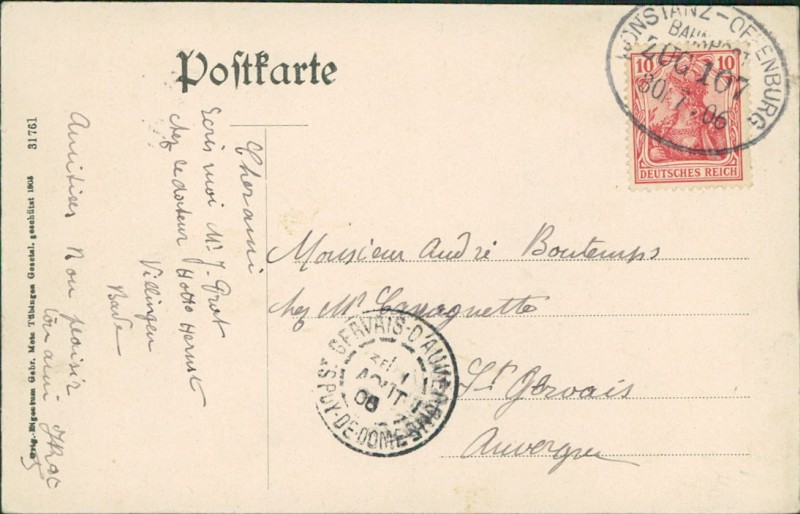 Postkarte
KONSTANZ-OFFENBURG
BAHNPOST
ZUG 107
30.7.06
10 10
DEUTSCHES REICH
Cher ami
Ecris moi Mr J. Grot
chez le docteur
Villingen
Bade
Amitiés Bon plaisir
ton ami
Monsieur André Boutemps
chez Mr Cavagnette
St Gervais
Auvergne
ST GERVAIS-D'AUVERGNE
AOUT
06
PUY-DE-DOME
Orig.-Eigentum Gebr. Metz Tübingen Gesetzl. geschützt 1905 31761